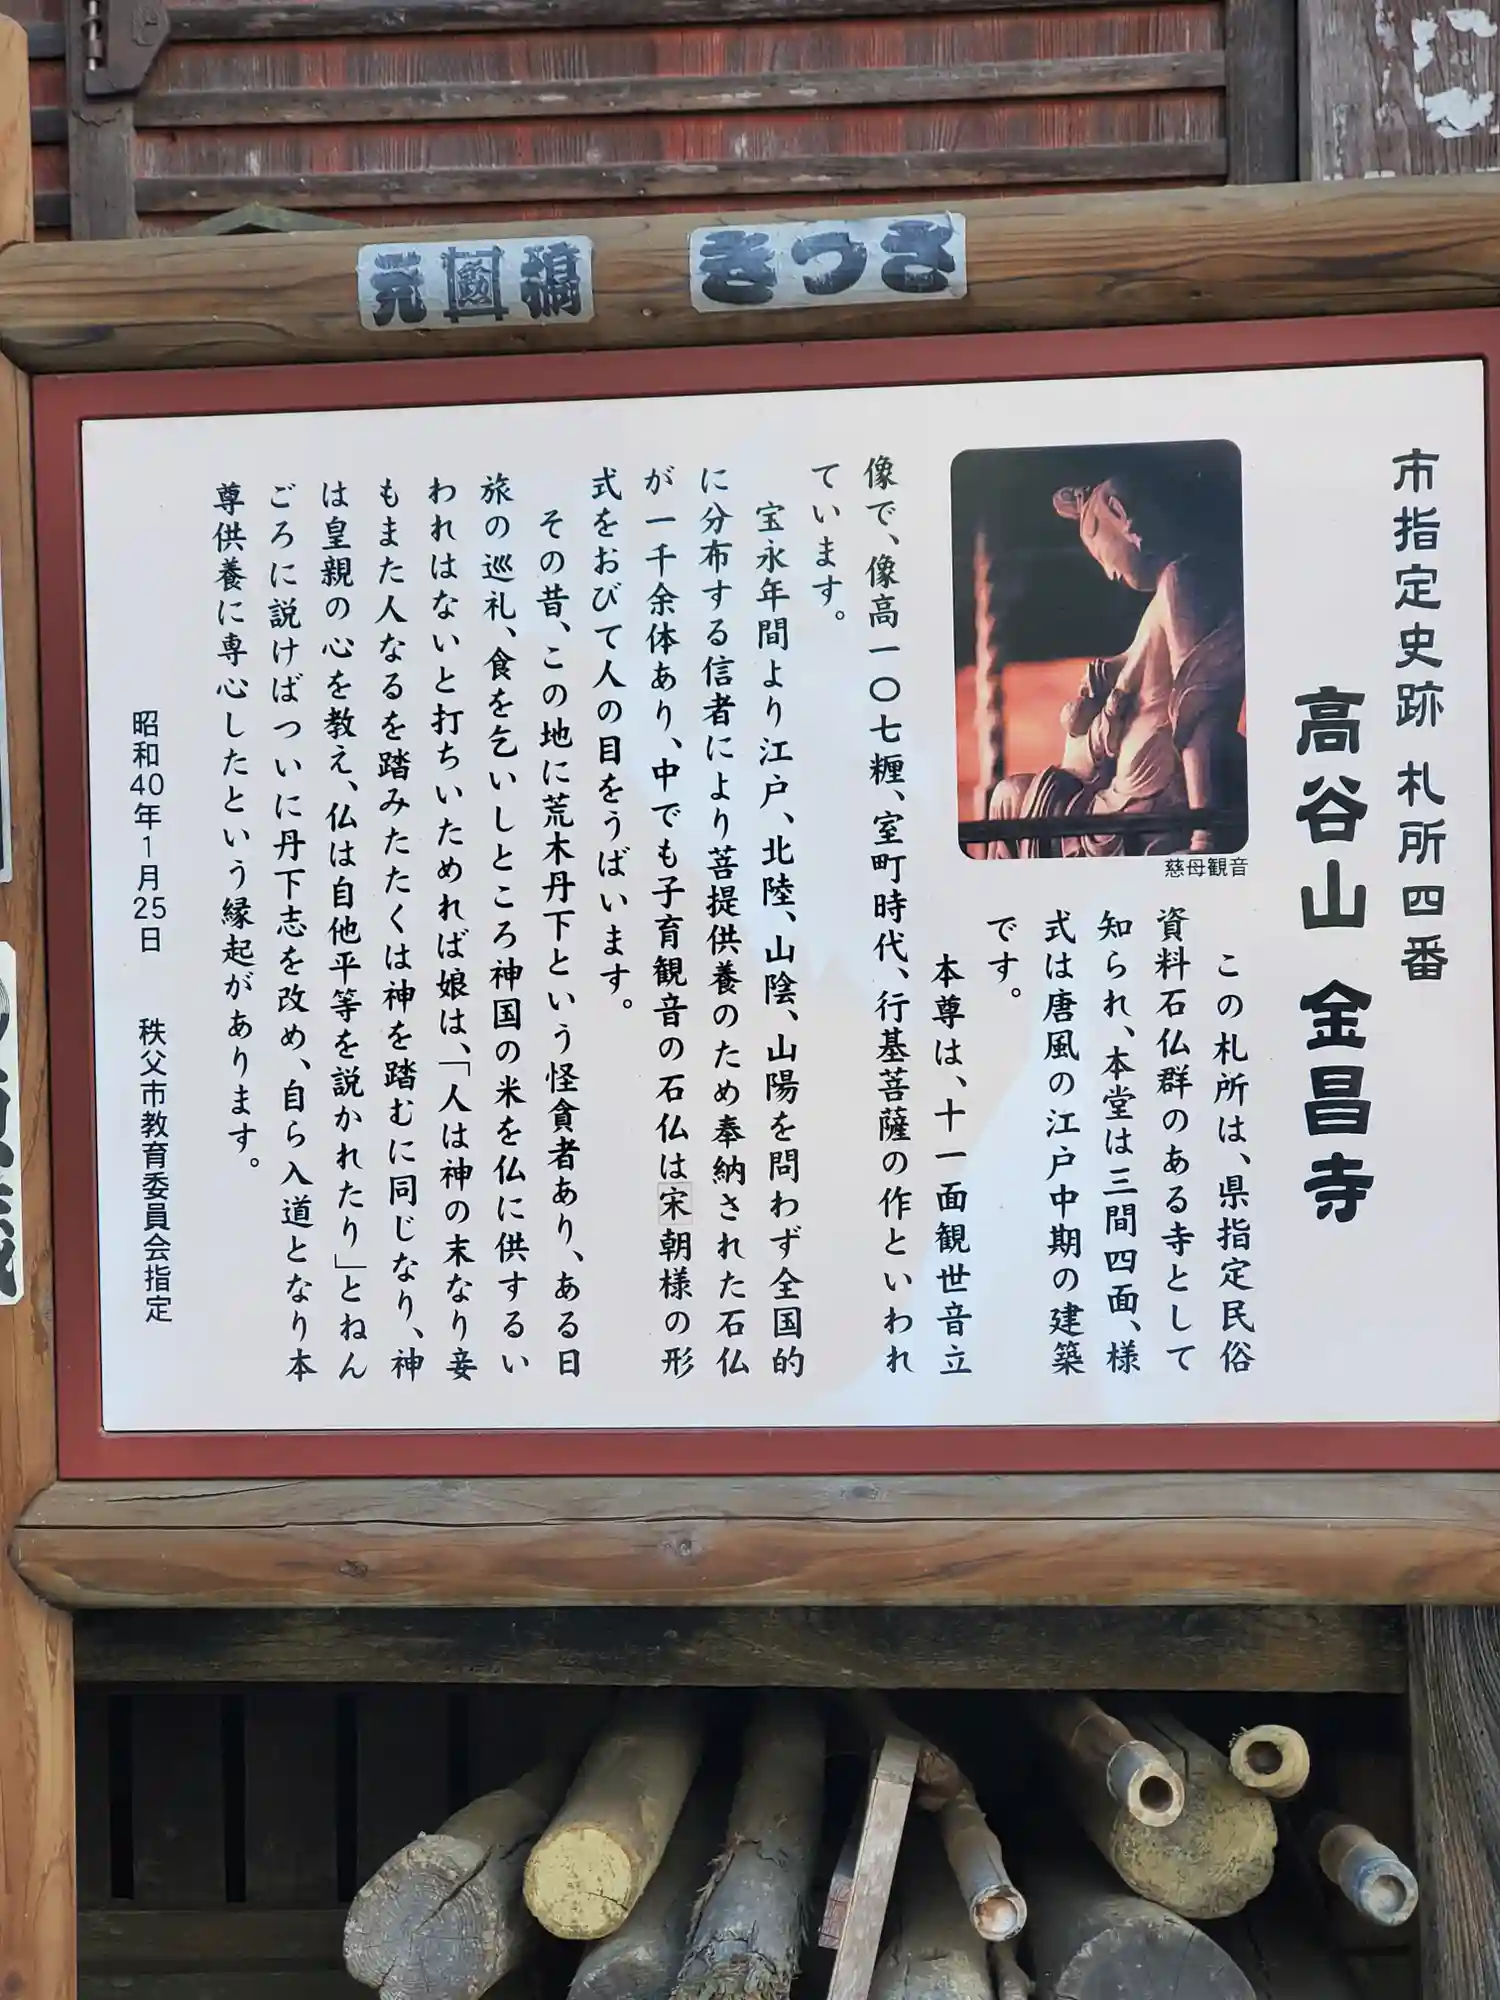 市指定史跡 札所四番
高谷山 金昌寺
慈母観音
この札所は、県指定民俗
資料石仏群のある寺として
知られ、本堂は三間四面、様
式は唐風の江戸中期の建築
です。
本尊は、十一面観世音立
像で、像高一〇七糎、室町時代、行基菩薩の作といわれ
ています。
宝永年間より江戸、北陸、山陰、山陽を問わず全国的
に分布する信者により菩提供養のため奉納された石仏
が一千余体あり、中でも子育観音の石仏は宋朝様の形
式をおびて人の目をうばいます。
その昔、この地に荒木丹下という怪貪者あり、ある日
旅の巡礼、食を乞いしところ神国の米を仏に供するい
われはないと打ちいためれば娘は、「人は神の末なり妾
もまた人なるを踏みたたくは神を踏むに同じなり、神
は皇親の心を教え、仏は自他平等を説かれたり」とねん
ごろに説けばついに丹下志を改め、自ら入道となり本
尊供養に専心したという縁起があります。
昭和40年1月25日 秩父市教育委員会指定